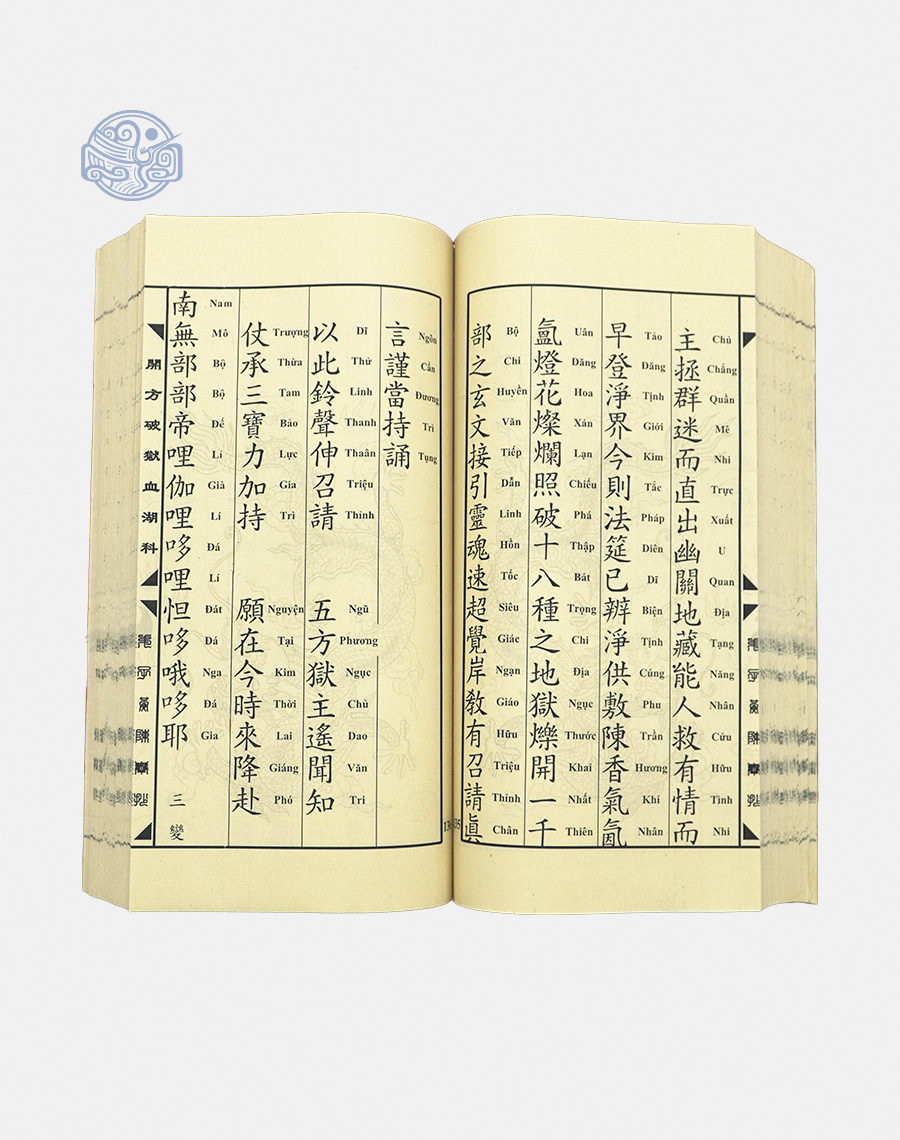 主拯群迷而直出幽關地藏能人救有情而
Chủ Chẳng Quần Mê Nhi Trực Xuất U Quan Địa Tạng Năng Nhân Cứu Hữu Tình Nhi
早登淨界今則法筵已辦淨供敷陳香氣氤
Tảo Đăng Tịnh Giới Kim Tắc Pháp Diên Dĩ Biện Tịnh Cúng Phu Trần Hương Khí Nhân
氳燈花燦爛照破十八種之地獄爍開一千
Uân Đăng Hoa Xán Lạn Chiếu Phá Thập Bát Trọng Chi Địa Ngục Thước Khai Nhất Thiên
部之玄文接引靈魂速超覺岸教有召請眞
Bộ Chi Huyền Văn Tiếp Dẫn Linh Hồn Tốc Siêu Giác Ngạn Giáo Hữu Triệu Thỉnh Chân
言謹當持誦
Ngôn Cẩn Đương Trì Tụng
以此鈴聲伸召請 五方獄主遙聞知
Dĩ Thử Linh Thanh Thaân Triệu Thỉnh Ngũ Phương Ngục Chủ Dao Văn Tri
仗承三寶力加持 願在今時來降赴
Trượng Thừa Tam Bảo Lực Gia Trì Nguyện Tại Kim Thời Lai Giáng Phó
南無部部帝哩伽哩哆哩怛哆哦哆耶 三變
Nam Mô Bộ Bộ Đế Lí Già Lí Đá Lí Đát Đá Nga Đá Gia
開方破獄血湖科